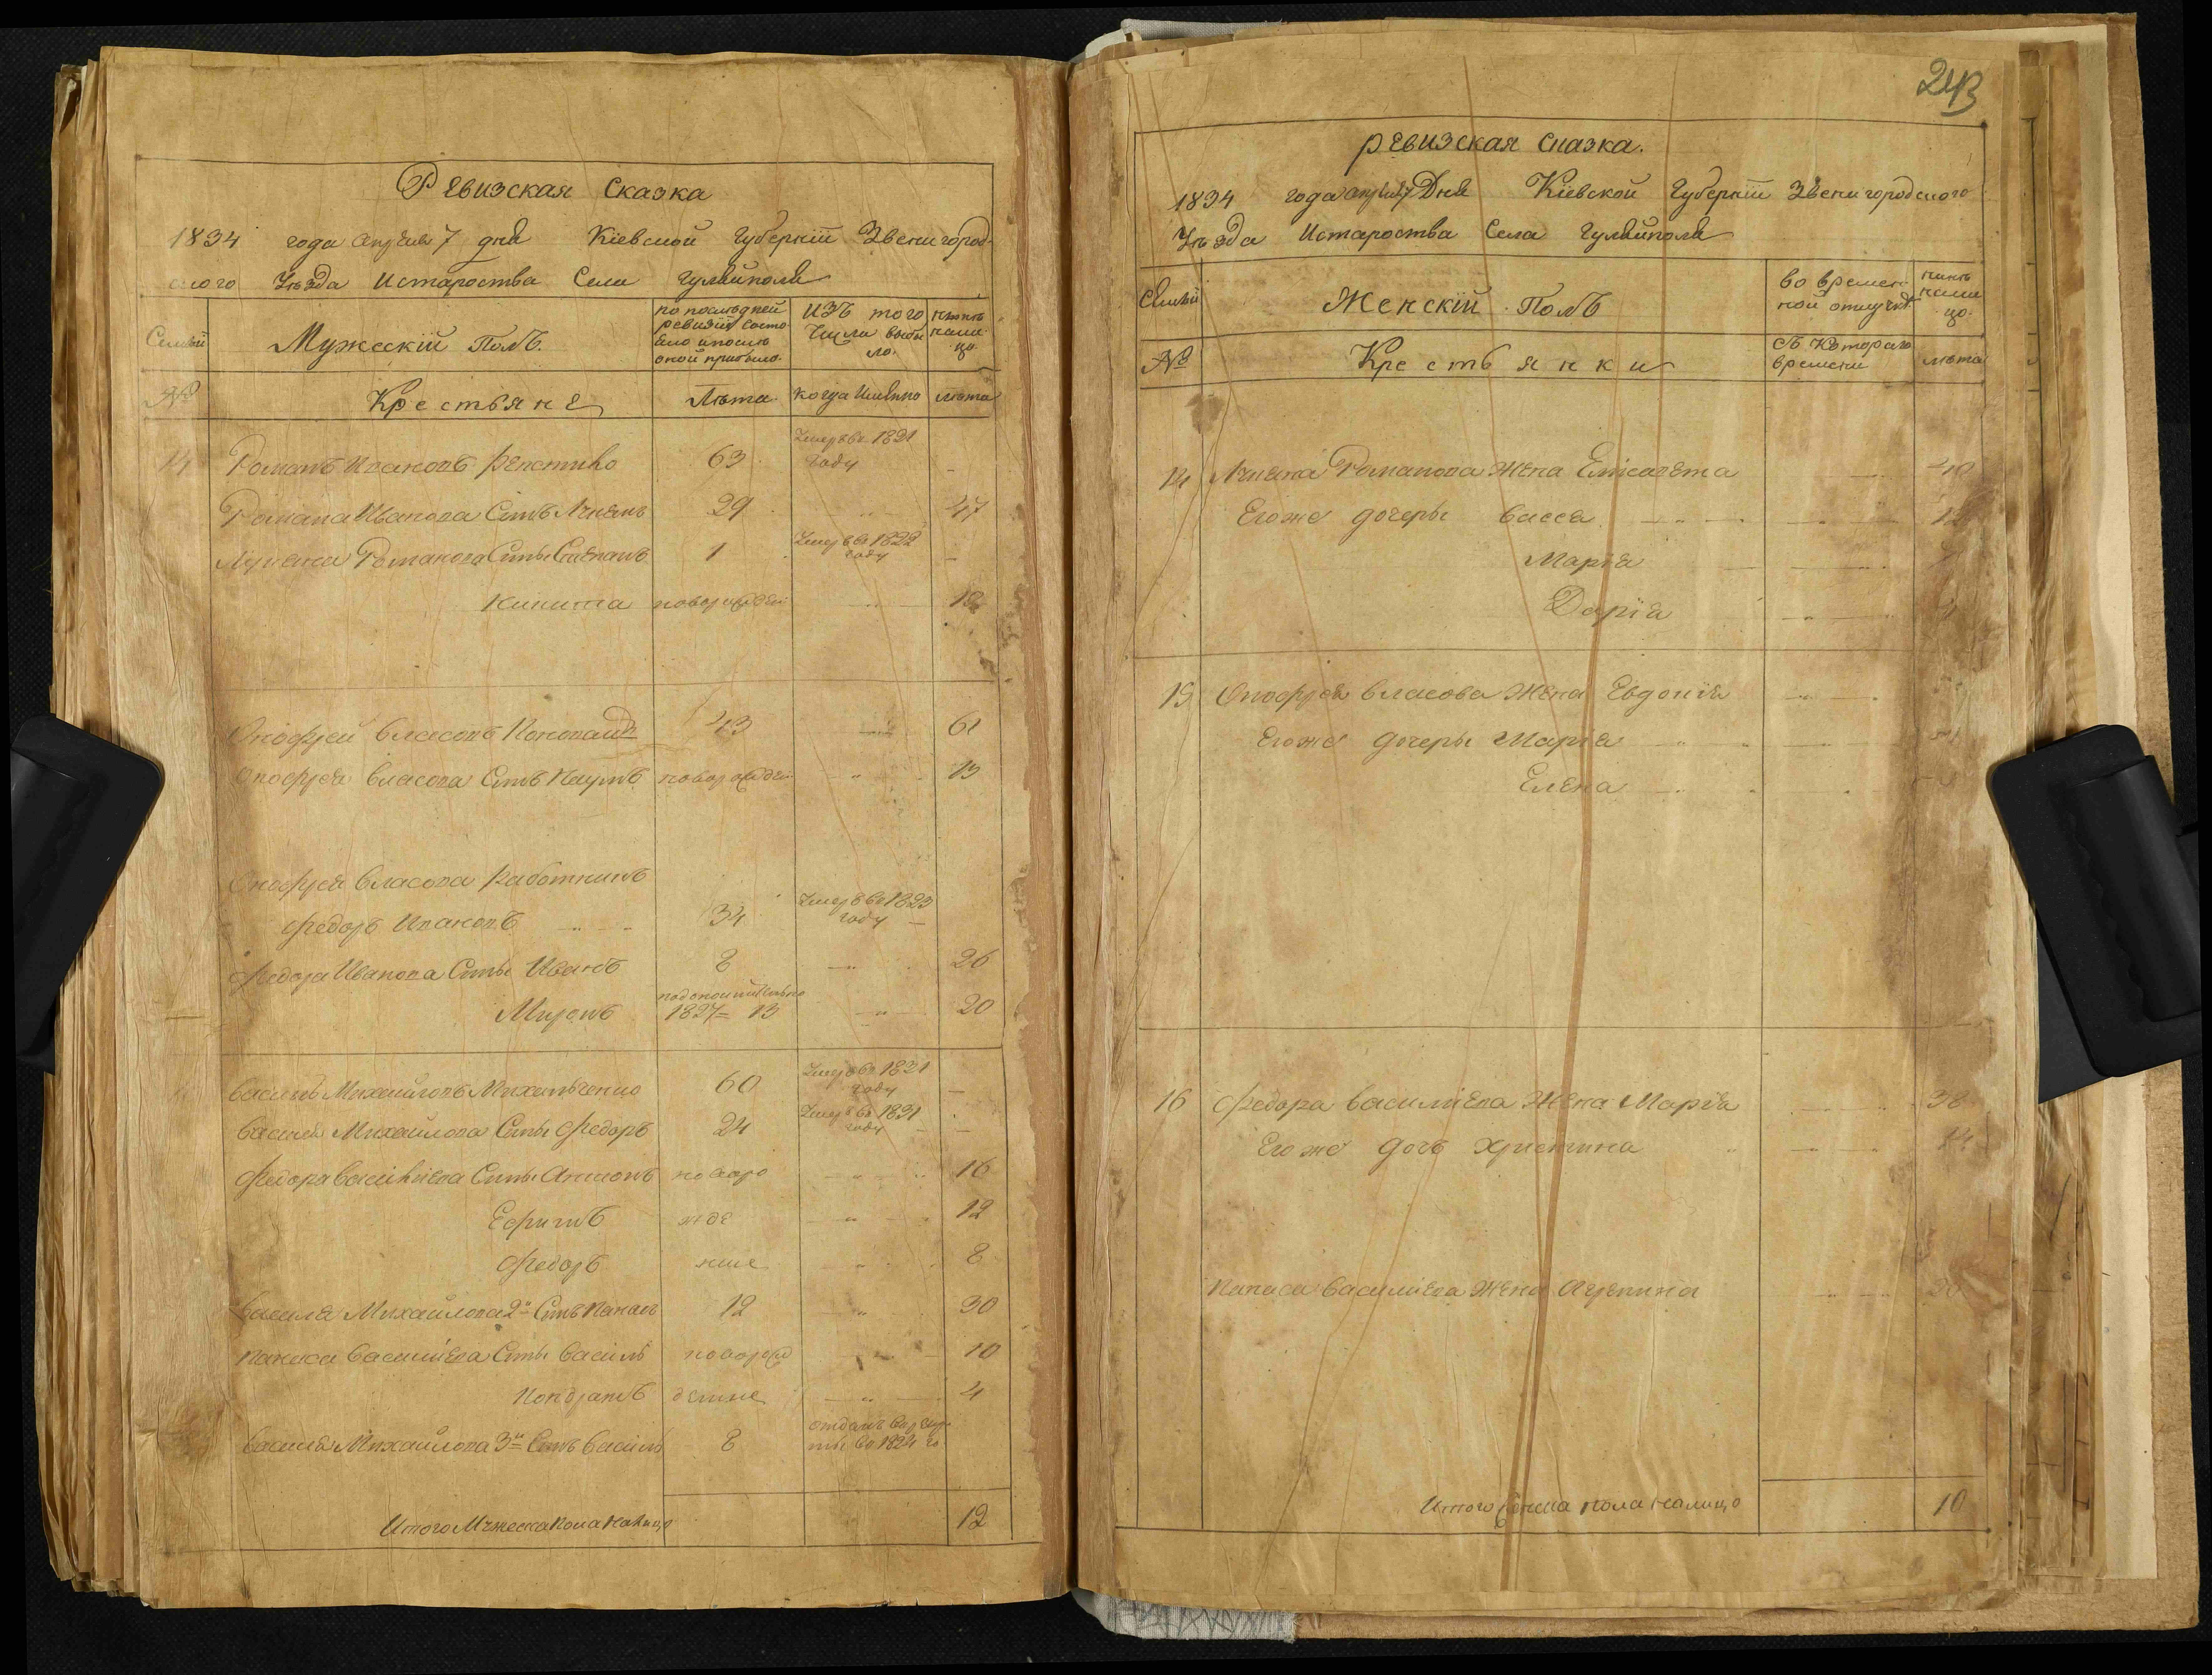 Ревизская Сказка
1834 года апреля 7 дня Кіевской Губерніи Звенигород-
ского Уѣзда Истароства Села Гуляйполя
Семьи
Мужескій Полъ.
по послѣдней
ревизіи состо
яло ипослѣ
оной прибыло.
ИЗЪ того
Числа выбы
ло.
нынѣ
нали
цо.
№
Крестьяне
Лѣта.
когда Имянно
лѣта
14 Романъ Ивановъ 63 Умеръ во 1821 году –
Романа Иванова Сынъ Лукьянъ 29 47
Лукьяна Романова Сыны Степанъ 1 Умеръ во 1822 году –
Никита новорожден 12
Онофрей Власовъ Коноваль 43 61
Онофрея Власова Сынъ Наумъ новорожден 13
Онофрея Власова Работникъ
Федоръ Ивановъ 34 Умеръ во 1823 году –
Федора Иванова Сыны Иванъ 8 26
Миронъ 1827 = 13 20
Василь Михайловъ Михальченко 60 Умеръ во 1831 году –
Василя Михайлова Сыны Федоръ 24 Умеръ во 1831 году –
Федора Василіева Сыны Антонъ новоро 16
Ефимъ жде 12
Федоръ ние 8
Василя Михайлова 2й Сынъ Панасъ 12 30
Панаса Василіева Сыны Василь новорож 10
Кондратъ дение 4
Василя Михайлова 3й Сынъ Василь 8 отданъ в рекру
ты во 1824 го
Итого Мужеска Пола Налицо 12
243
ревизская сказка.
1834 года апреля 7 Дня Кіевской Губерніи Звенигородского
Уѣзда Истароства Села Гуляйполя
Семьи
Женскій Полъ
во времен
ной отлучкѣ
нынѣ
нали
цо.
№
Крестьянки
СЪ Котораго
времени
лѣта
14 Лукьяна Романова Жена Елисавета 40
Егоже дочеры Васса 12
Марія
Дарія
15 Онофрея Власова Жена Евдокія
Егоже дочеры Марія
Елена
16 Федора Василіева Жена Марія 38
Егоже дочь Христина 14
Панаса Василіева Жена Агрепина
Итого Женска пола налицо 10